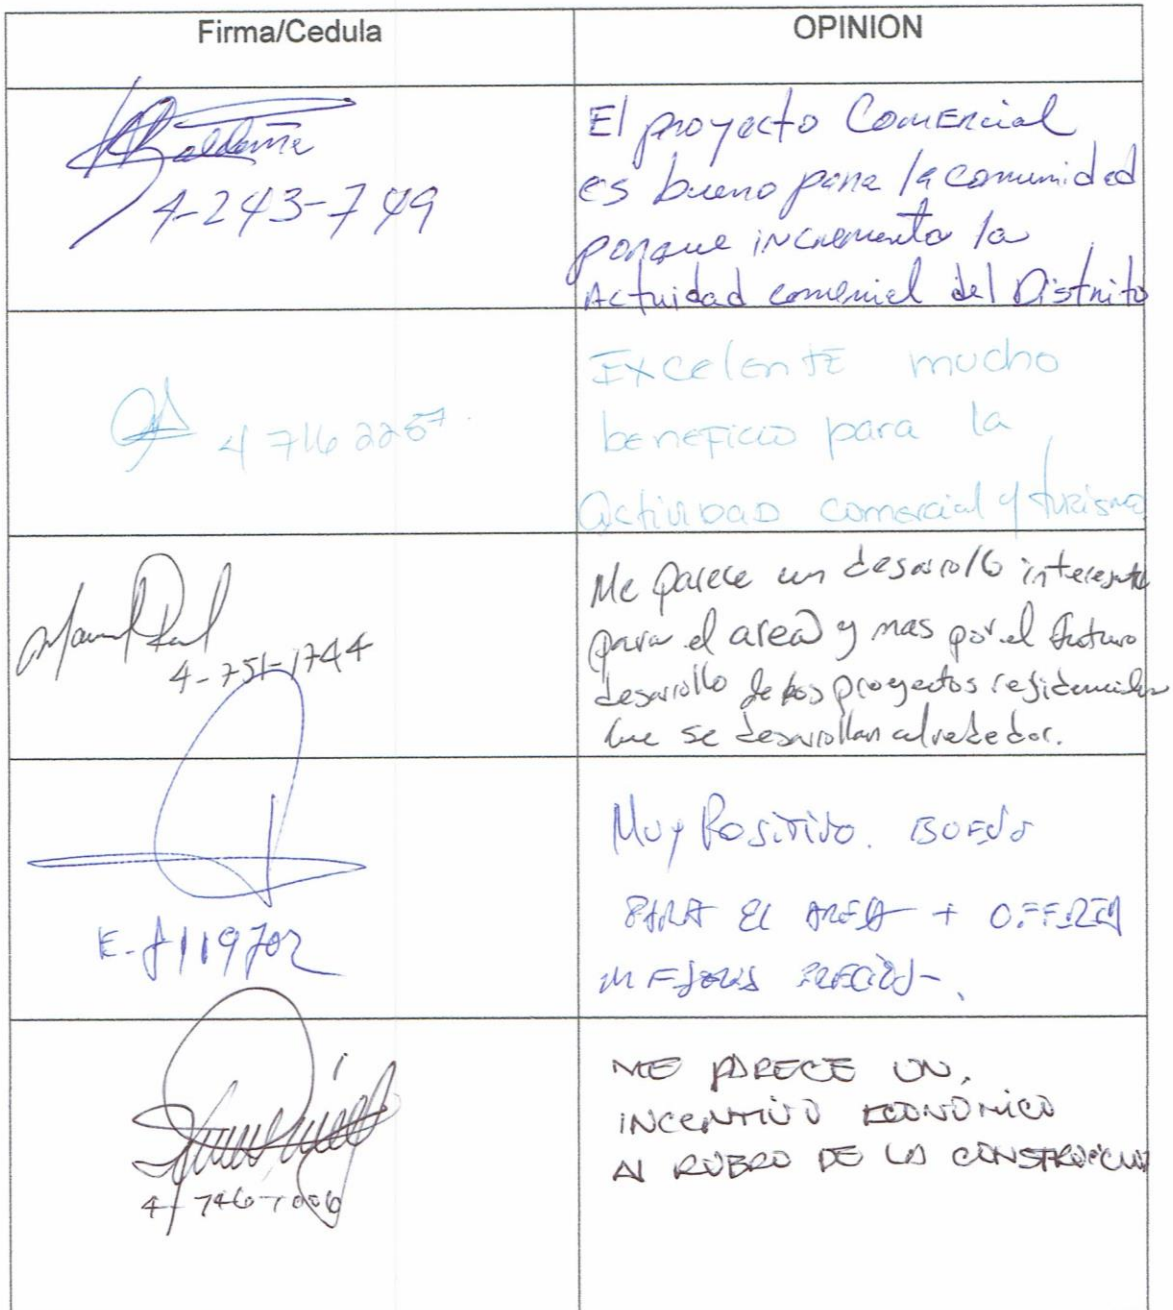 Firma/Cedula
OPINION
4-243-749
El proyecto Comercial
es bueno para la comunidad
porque incrementa la
Actuidad comercial del Distrito
4 716 2257
Excelente mucho
beneficio para la
actividad comercial y turismo
4-751-1744
Me parece un desarrollo interesante
para el area y mas por el futuro
desarrollo de los proyectos residenciales
que se desarrollan alrededor.
E-8119702
Muy Positivo. BUENO
PARA EL AREA + OFFERTA
MEJORES PRECIOS-.
ME PARECE UN,
INCENTIVO ECONÓMICO
AL RUBRO DE LA CONSTRUCCION
4-746-1006